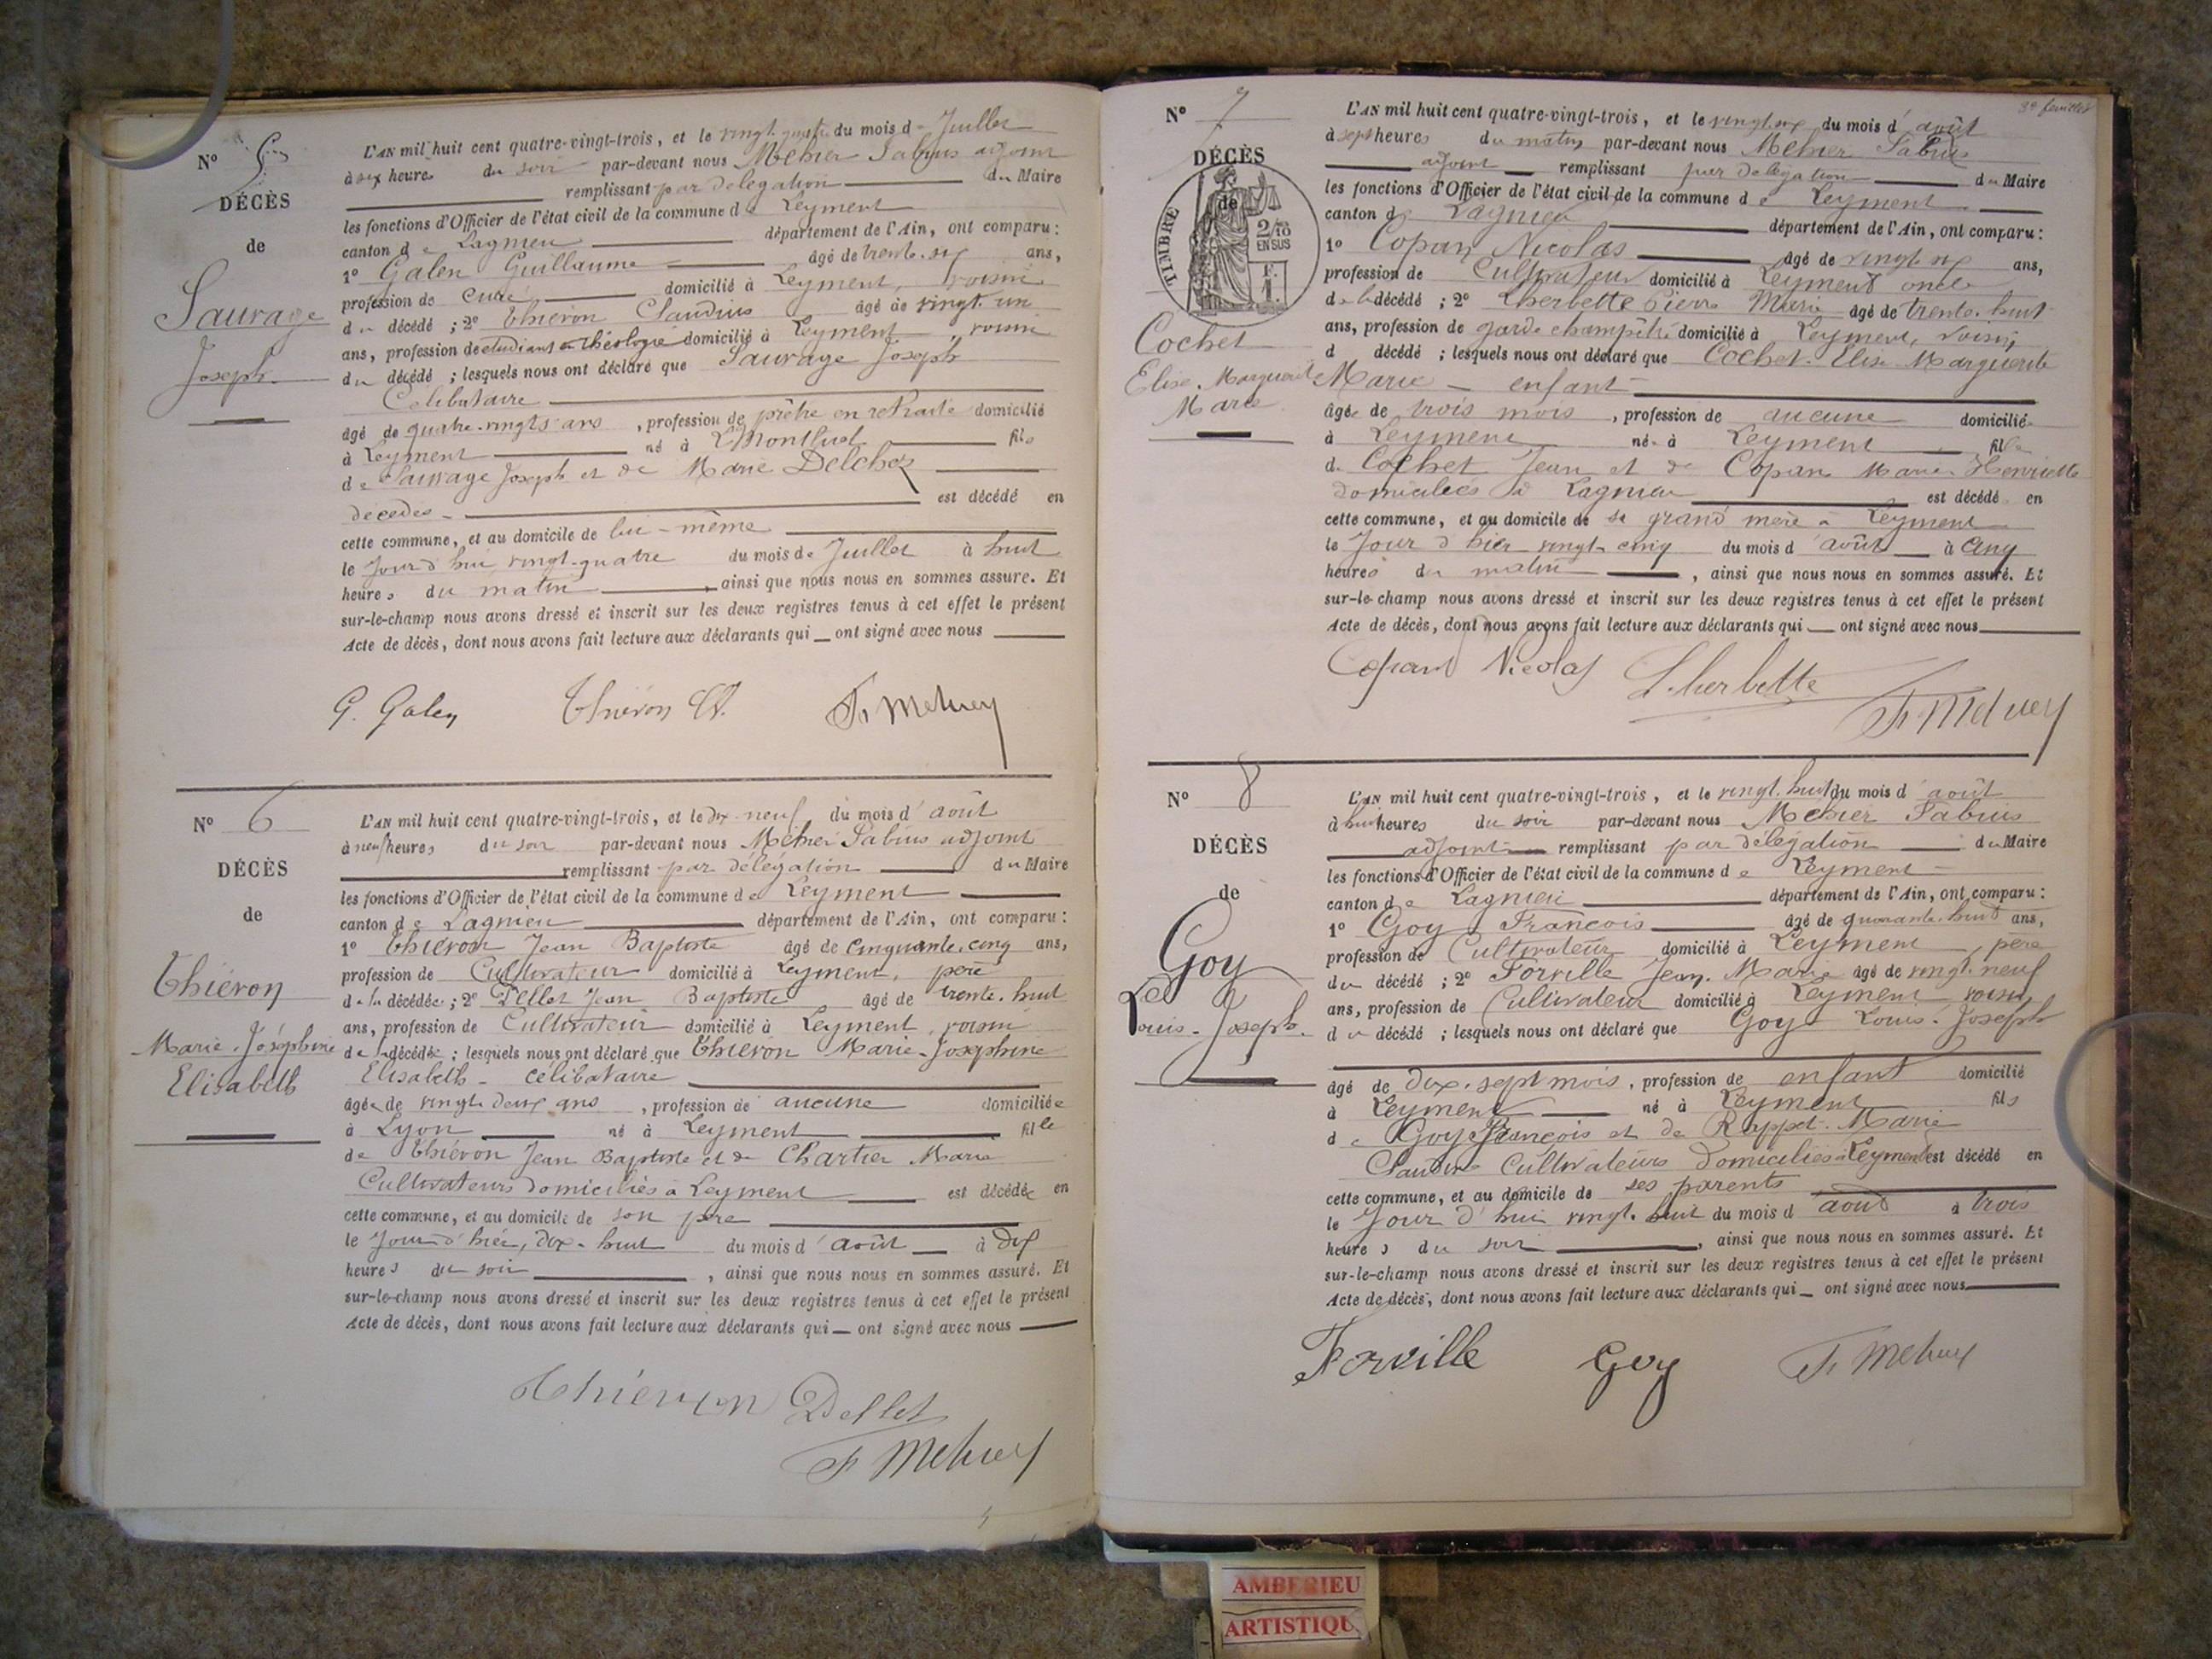 N° 5
DÉCÈS
de
Sauvage
Joseph
L'AN mil huit cent quatre-vingt-trois, et le vingt quatre du mois d e Juillet
à six heures du soir par-devant nous Mehier Fabius adjoint
remplissant par délégation du Maire
les fonctions d'Officier de l'état civil de la commune d e Leyment
canton d e Lagnieu département de l'Ain, ont comparu :
1° Galen Guillaume âgé de trente-six ans,
profession de curé domicilié à Leyment, voisin
d u décédé ; 2° Thiéron Claudius âgé de vingt-un
ans, profession de étudiant en théologie domicilié à Leyment, voisin
d u décédé ; lesquels nous ont déclaré que Sauvage Joseph
Célibataire
âgé de quatre-vingts ans, profession de prêtre en retraite domicilié
à Leyment né à Montluel fils
d e Sauvage Joseph et de Marie Delchos
décédés est décédé en
cette commune, et au domicile de lui-même
le Jour d'hui vingt-quatre du mois de Juillet à huit
heures du matin, ainsi que nous nous en sommes assuré. Et
sur-le-champ nous avons dressé et inscrit sur les deux registres tenus à cet effet le présent
Acte de décès, dont nous avons fait lecture aux déclarants qui ont signé avec nous
G. Galen Thiéron Cl.
N° 6
DÉCÈS
de
Thiéron
Marie-Joséphine
Elisabeth
L'AN mil huit cent quatre-vingt-trois, et le dix-neuf du mois d'août
à neuf heures du soir par-devant nous Mehier Fabius adjoint
remplissant par délégation du Maire
les fonctions d'Officier de l'état civil de la commune d e Leyment
canton d e Lagnieu département de l'Ain, ont comparu :
1° Thiéron Jean Baptiste âgé de cinquante-cinq ans,
profession de Cultivateur domicilié à Leyment, père
d e la décédée ; 2° Pellet Jean Baptiste âgé de trente-huit
ans, profession de Cultivateur domicilié à Leyment, voisin
d e la décédée ; lesquels nous ont déclaré que Thiéron Marie-Joséphine
Elisabeth - célibataire
âgée de vingt-deux ans, profession de aucune domiciliée
à Lyon né à Leyment fille
de Thiéron Jean Baptiste et de Chartier Marie
Cultivateurs domiciliés à Leyment est décédée en
cette commune, et au domicile de son père
le Jour d'hier, dix-huit du mois d'août à dix
heures du soir, ainsi que nous nous en sommes assuré. Et
sur-le-champ nous avons dressé et inscrit sur les deux registres tenus à cet effet le présent
Acte de décès, dont nous avons fait lecture aux déclarants qui ont signé avec nous
Thiéron Pellet
3e feuillet
N° 7
DÉCÈS
de
TIMBRE
2/10
EN SUS
F.
1.
Cochet
Elise-Marguerite
Marie
L'AN mil huit cent quatre-vingt-trois, et le vingt six du mois d'août
à sept heures du matin par-devant nous Mehier Fabius
adjoint remplissant par délégation d u Maire
les fonctions d'Officier de l'état civil de la commune d e Leyment
canton d e Lagnieu département de l'Ain, ont comparu :
1° Copan Nicolas âgé de vingt six ans,
profession de Cultivateur domicilié à Leyment oncle
d e la décédé ; 2° Lherbette Pierre Marie âgé de trente-huit
ans, profession de garde champêtre domicilié à Leyment, voisin
d décédé ; lesquels nous ont déclaré que Cochet Elise-Marguerite
Marie - enfant
âgée de trois mois, profession de aucune domicilié
à Leyment né à Leyment fille
d e Cochet Jean et de Copan Marie-Henriette
domiciliés à Lagnieu est décédé en
cette commune, et au domicile de sa grand mère à Leyment
le Jour d'hier vingt-cinq du mois d'août à cinq
heures du matin, ainsi que nous nous en sommes assuré. Et
sur-le-champ nous avons dressé et inscrit sur les deux registres tenus à cet effet le présent
Acte de décès, dont nous avons fait lecture aux déclarants qui ont signé avec nous
Copan Nicolas Lherbette
N° 8
DÉCÈS
de
Goy
Louis-Joseph
L'AN mil huit cent quatre-vingt-trois, et le vingt-huit du mois d'août
à huit heures du soir par-devant nous Mehier Fabius
adjoint remplissant par délégation d u Maire
les fonctions d'Officier de l'état civil de la commune d e Leyment
canton d e Lagnieu département de l'Ain, ont comparu :
1° Goy François âgé de quarante-huit ans,
profession de Cultivateur domicilié à Leyment, père
du décédé ; 2° Forville Jean-Marie âgé de vingt-neuf
ans, profession de Cultivateur domicilié à Leyment voisin
d u décédé ; lesquels nous ont déclaré que Goy Louis-Joseph
âgé de dix-sept mois, profession de enfant domicilié
à Leyment né à Leyment fils
d e Goy François et de Rappet Marie
Claudine Cultivateurs domiciliés à Leyment est décédé en
cette commune, et au domicile de ses parents
le Jour d'hui vingt-huit du mois d'août à trois
heures du soir, ainsi que nous nous en sommes assuré. Et
sur-le-champ nous avons dressé et inscrit sur les deux registres tenus à cet effet le présent
Acte de décès, dont nous avons fait lecture aux déclarants qui ont signé avec nous
Forville Goy
AMBERIEU
ARTISTIQU